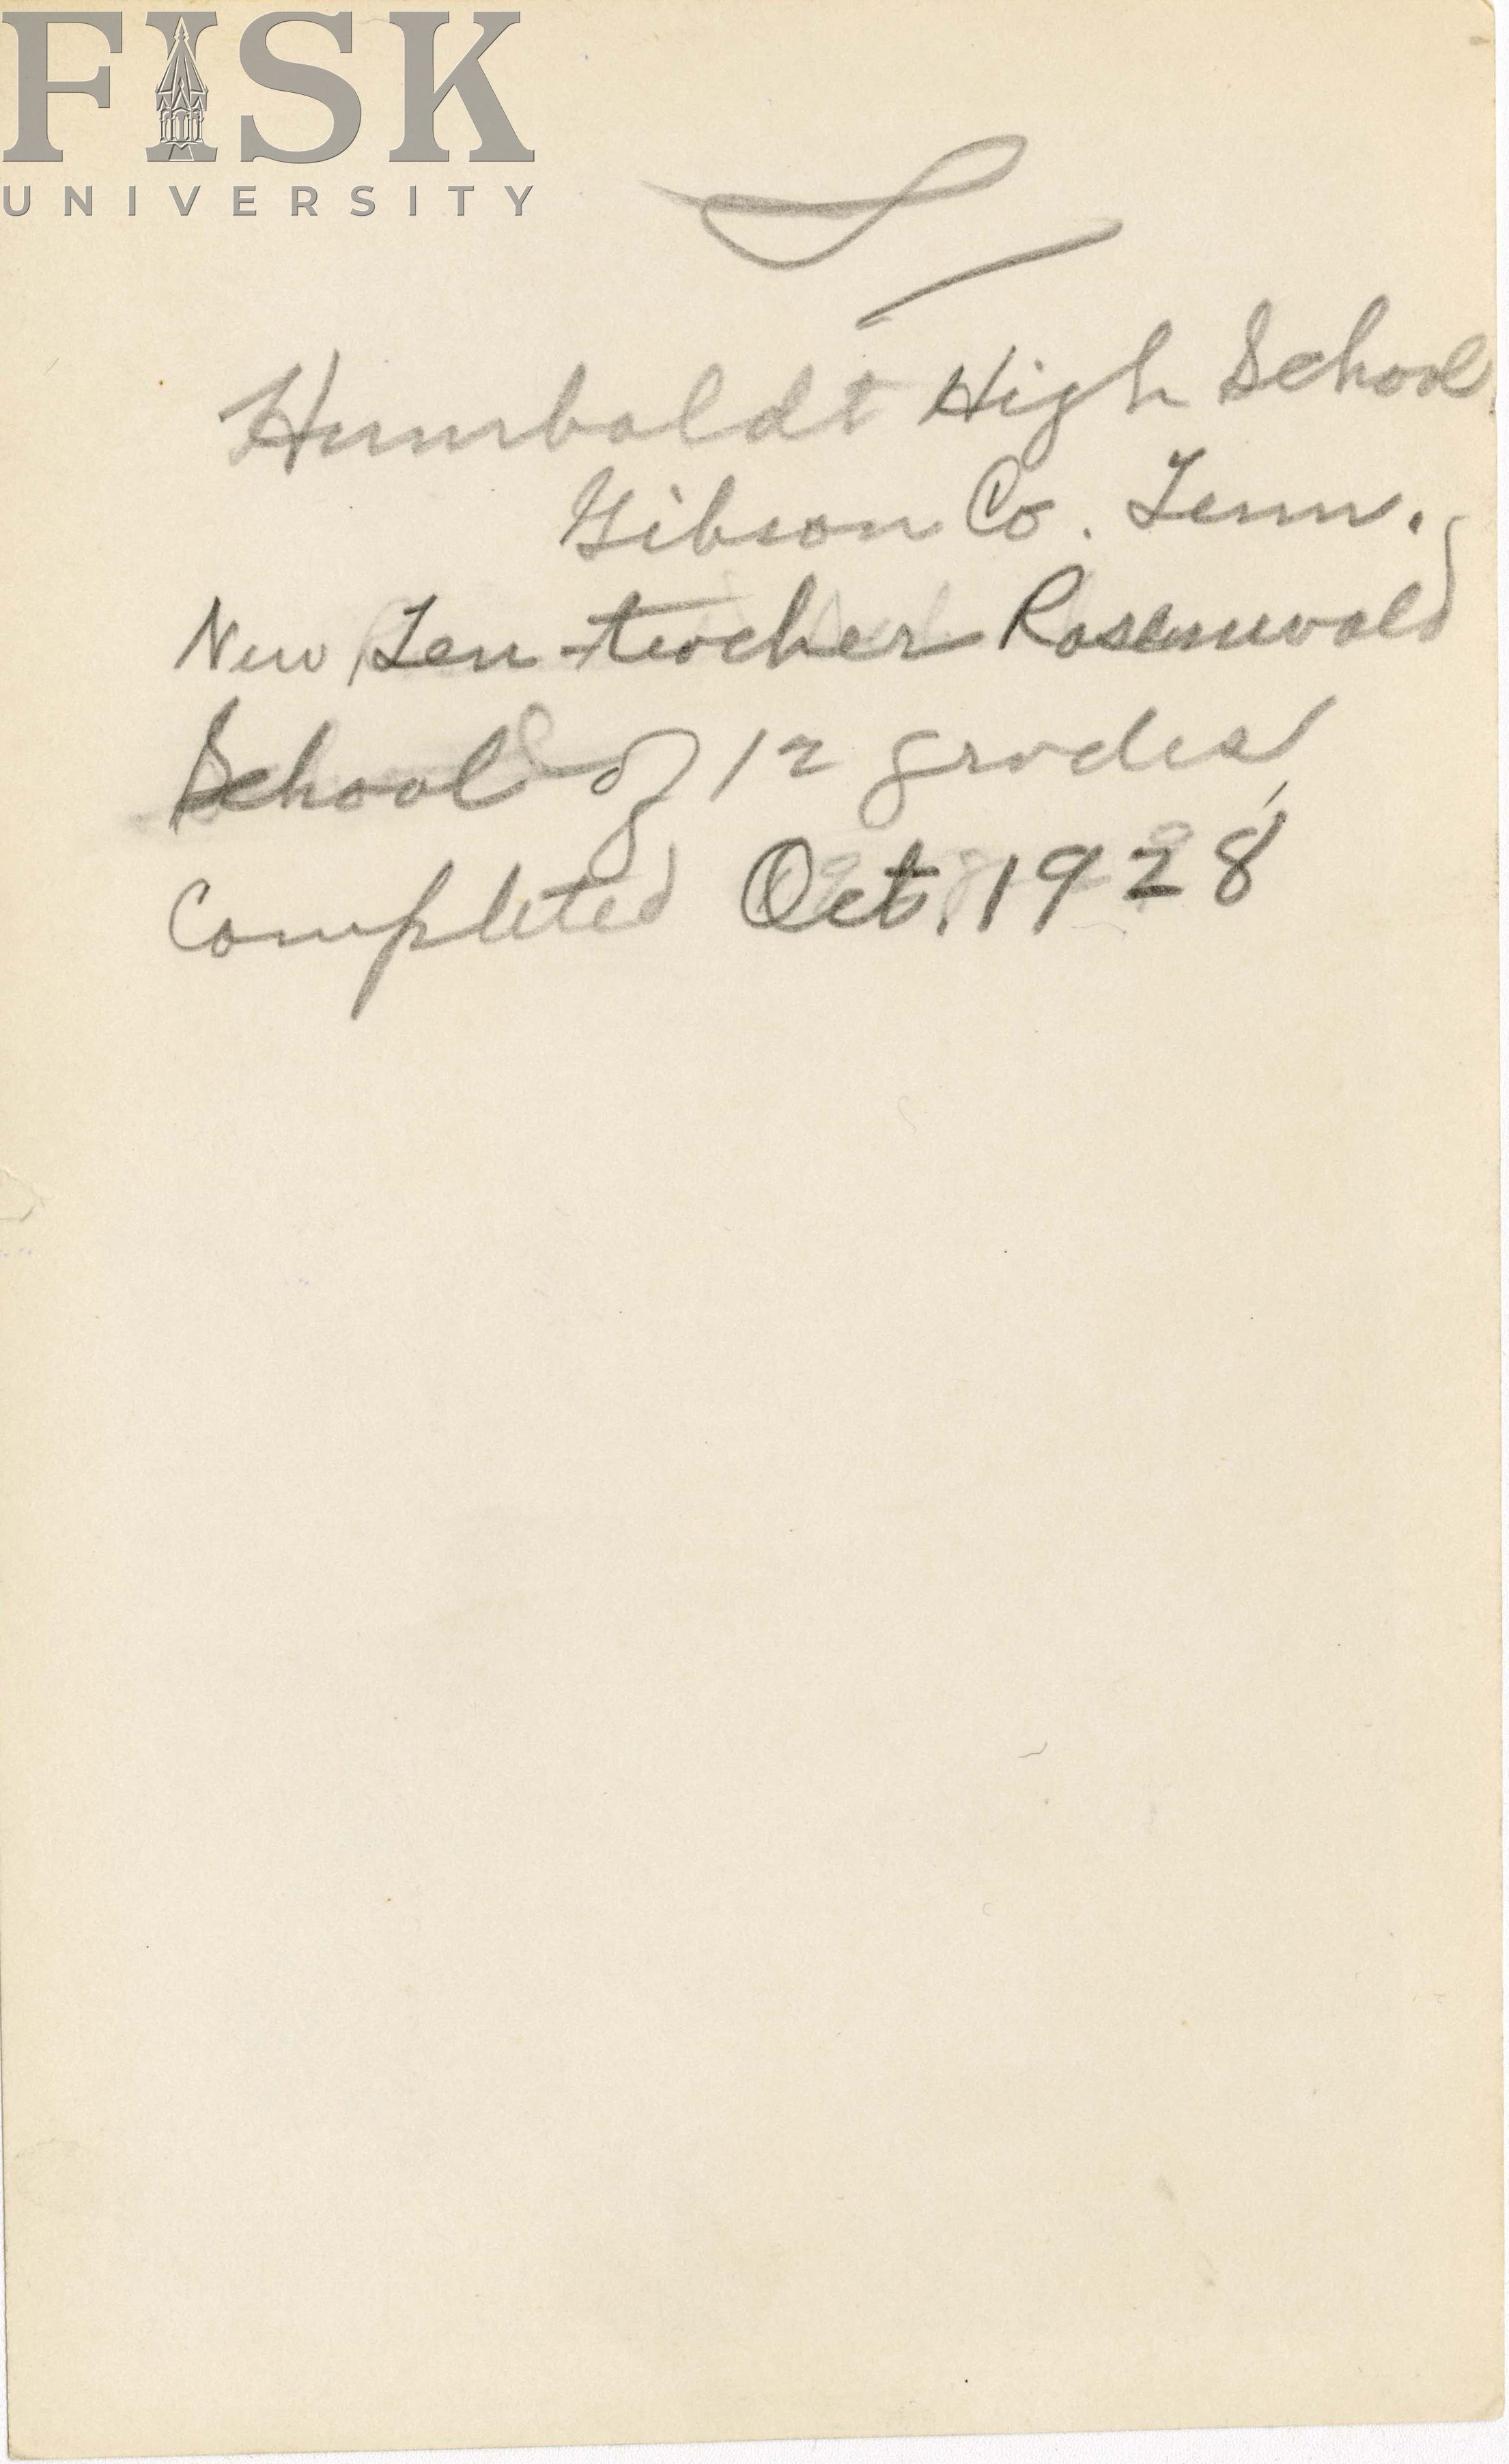 FISK
UNIVERSITY
Humboldt High School,
Gibson Co. Tenn.
New Ten-teacher Rosenwald
School of 12 grades,
Completed Oct. 1928